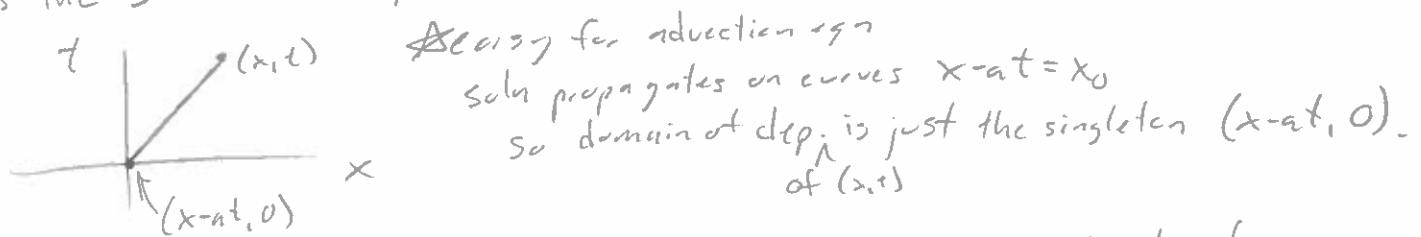 t
(x,t)
easy for advection eqn
soln propagates on curves x-at = x₀
so domain of dep. is just the singleton (x-at, 0).
of (x,t)
x
(x-at, 0)